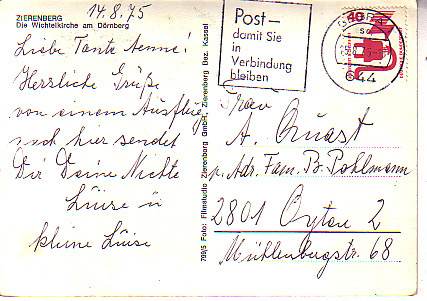 14.8.75
ZIERENBERG
Die Wichtelkirche am Dörnberg
Liebe Tante Aenne!
Herzliche Grüße
von einem Ausflug
nach hier sendet
Dir Deine Nichte
Luise u
kleine Luise
789/5 Foto: Filmstudio Zierenberg GmbH, Zierenberg Bez. Kassel
Post–
damit Sie
in
Verbindung
bleiben
644
Frau
A. Quast
p. Adr. Fam. B. Pohlmann
2801 Oyten 2
Mühlenbergstr. 68